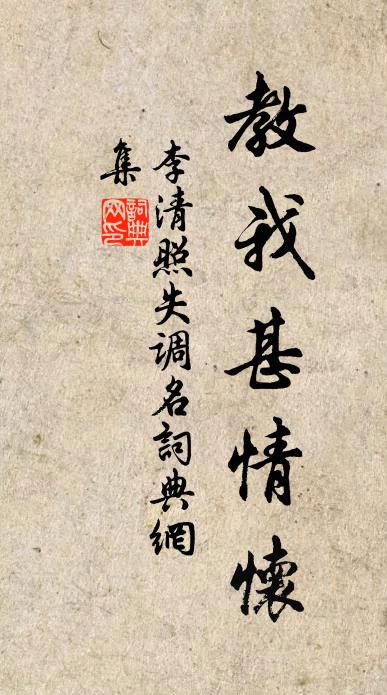 教我甚情懷
李清照失调名詞典網
集
詞典网印